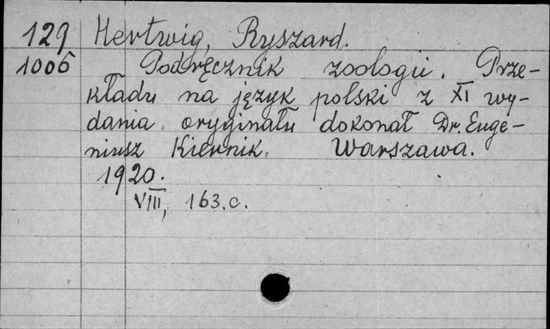 129 Hertwig, Ryszard.
1006 Podręcznik zoologii. Prze-
kładu na język polski z XI wy-
dania oryginału dokonał Dr. Euge-
niusz Kiernik. Warszawa.
1920.
VIII, 163.c.